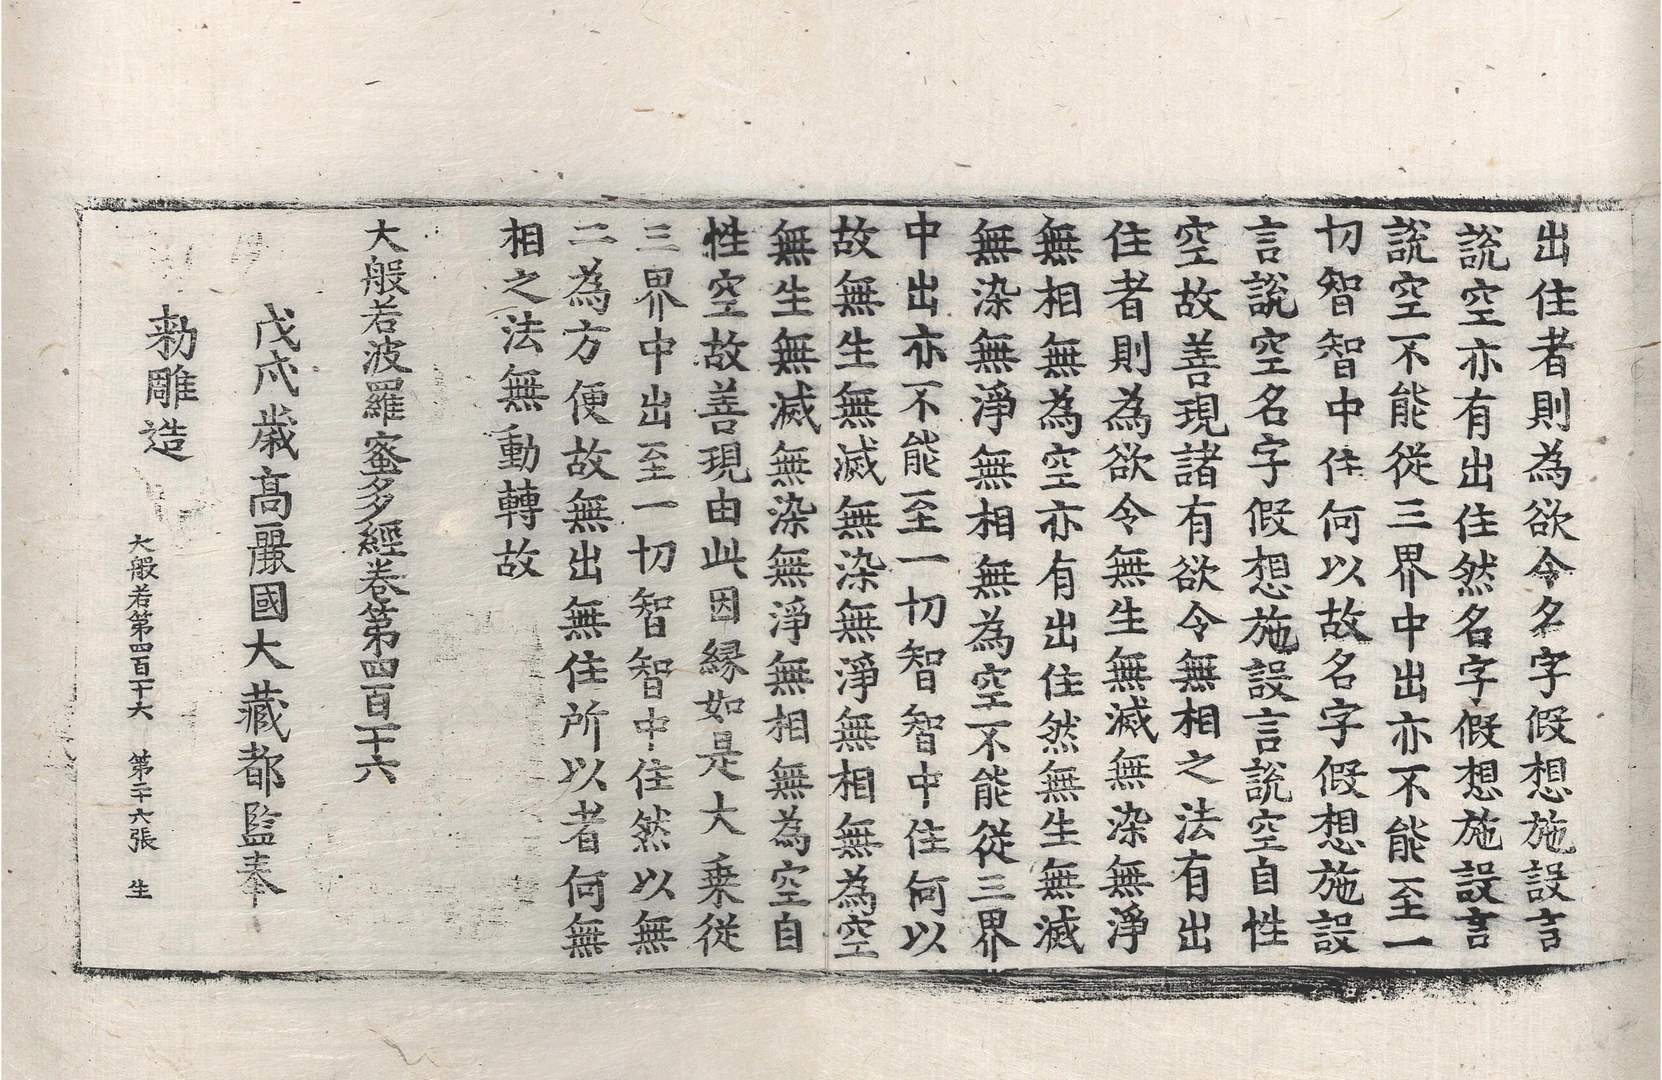 出住者則為欲令名字假想施設言
說空亦有出住然名字假想施設言
說空不能從三界中出亦不能至一
切智智中住何以故名字假想施設
言說空名字假想施設言說空自性
空故善現諸有欲令無相之法有出
住者則為欲令無生無滅無染無淨
無相無為空亦有出住然無生無滅
無染無淨無相無為空不能從三界
中出亦不能至一切智智中住何以
故無生無滅無染無淨無相無為空
無生無滅無染無淨無相無為空自
性空故善現由此因縁如是大乗從
三界中出至一切智智中住然以無
二為方便故無出無住所以者何無
相之法無動轉故
大般若波羅蜜多經卷第四百一十六
戊戌歲高麗國大藏都監奉
勑雕造
大般若第四百一十六 第二十六張 生